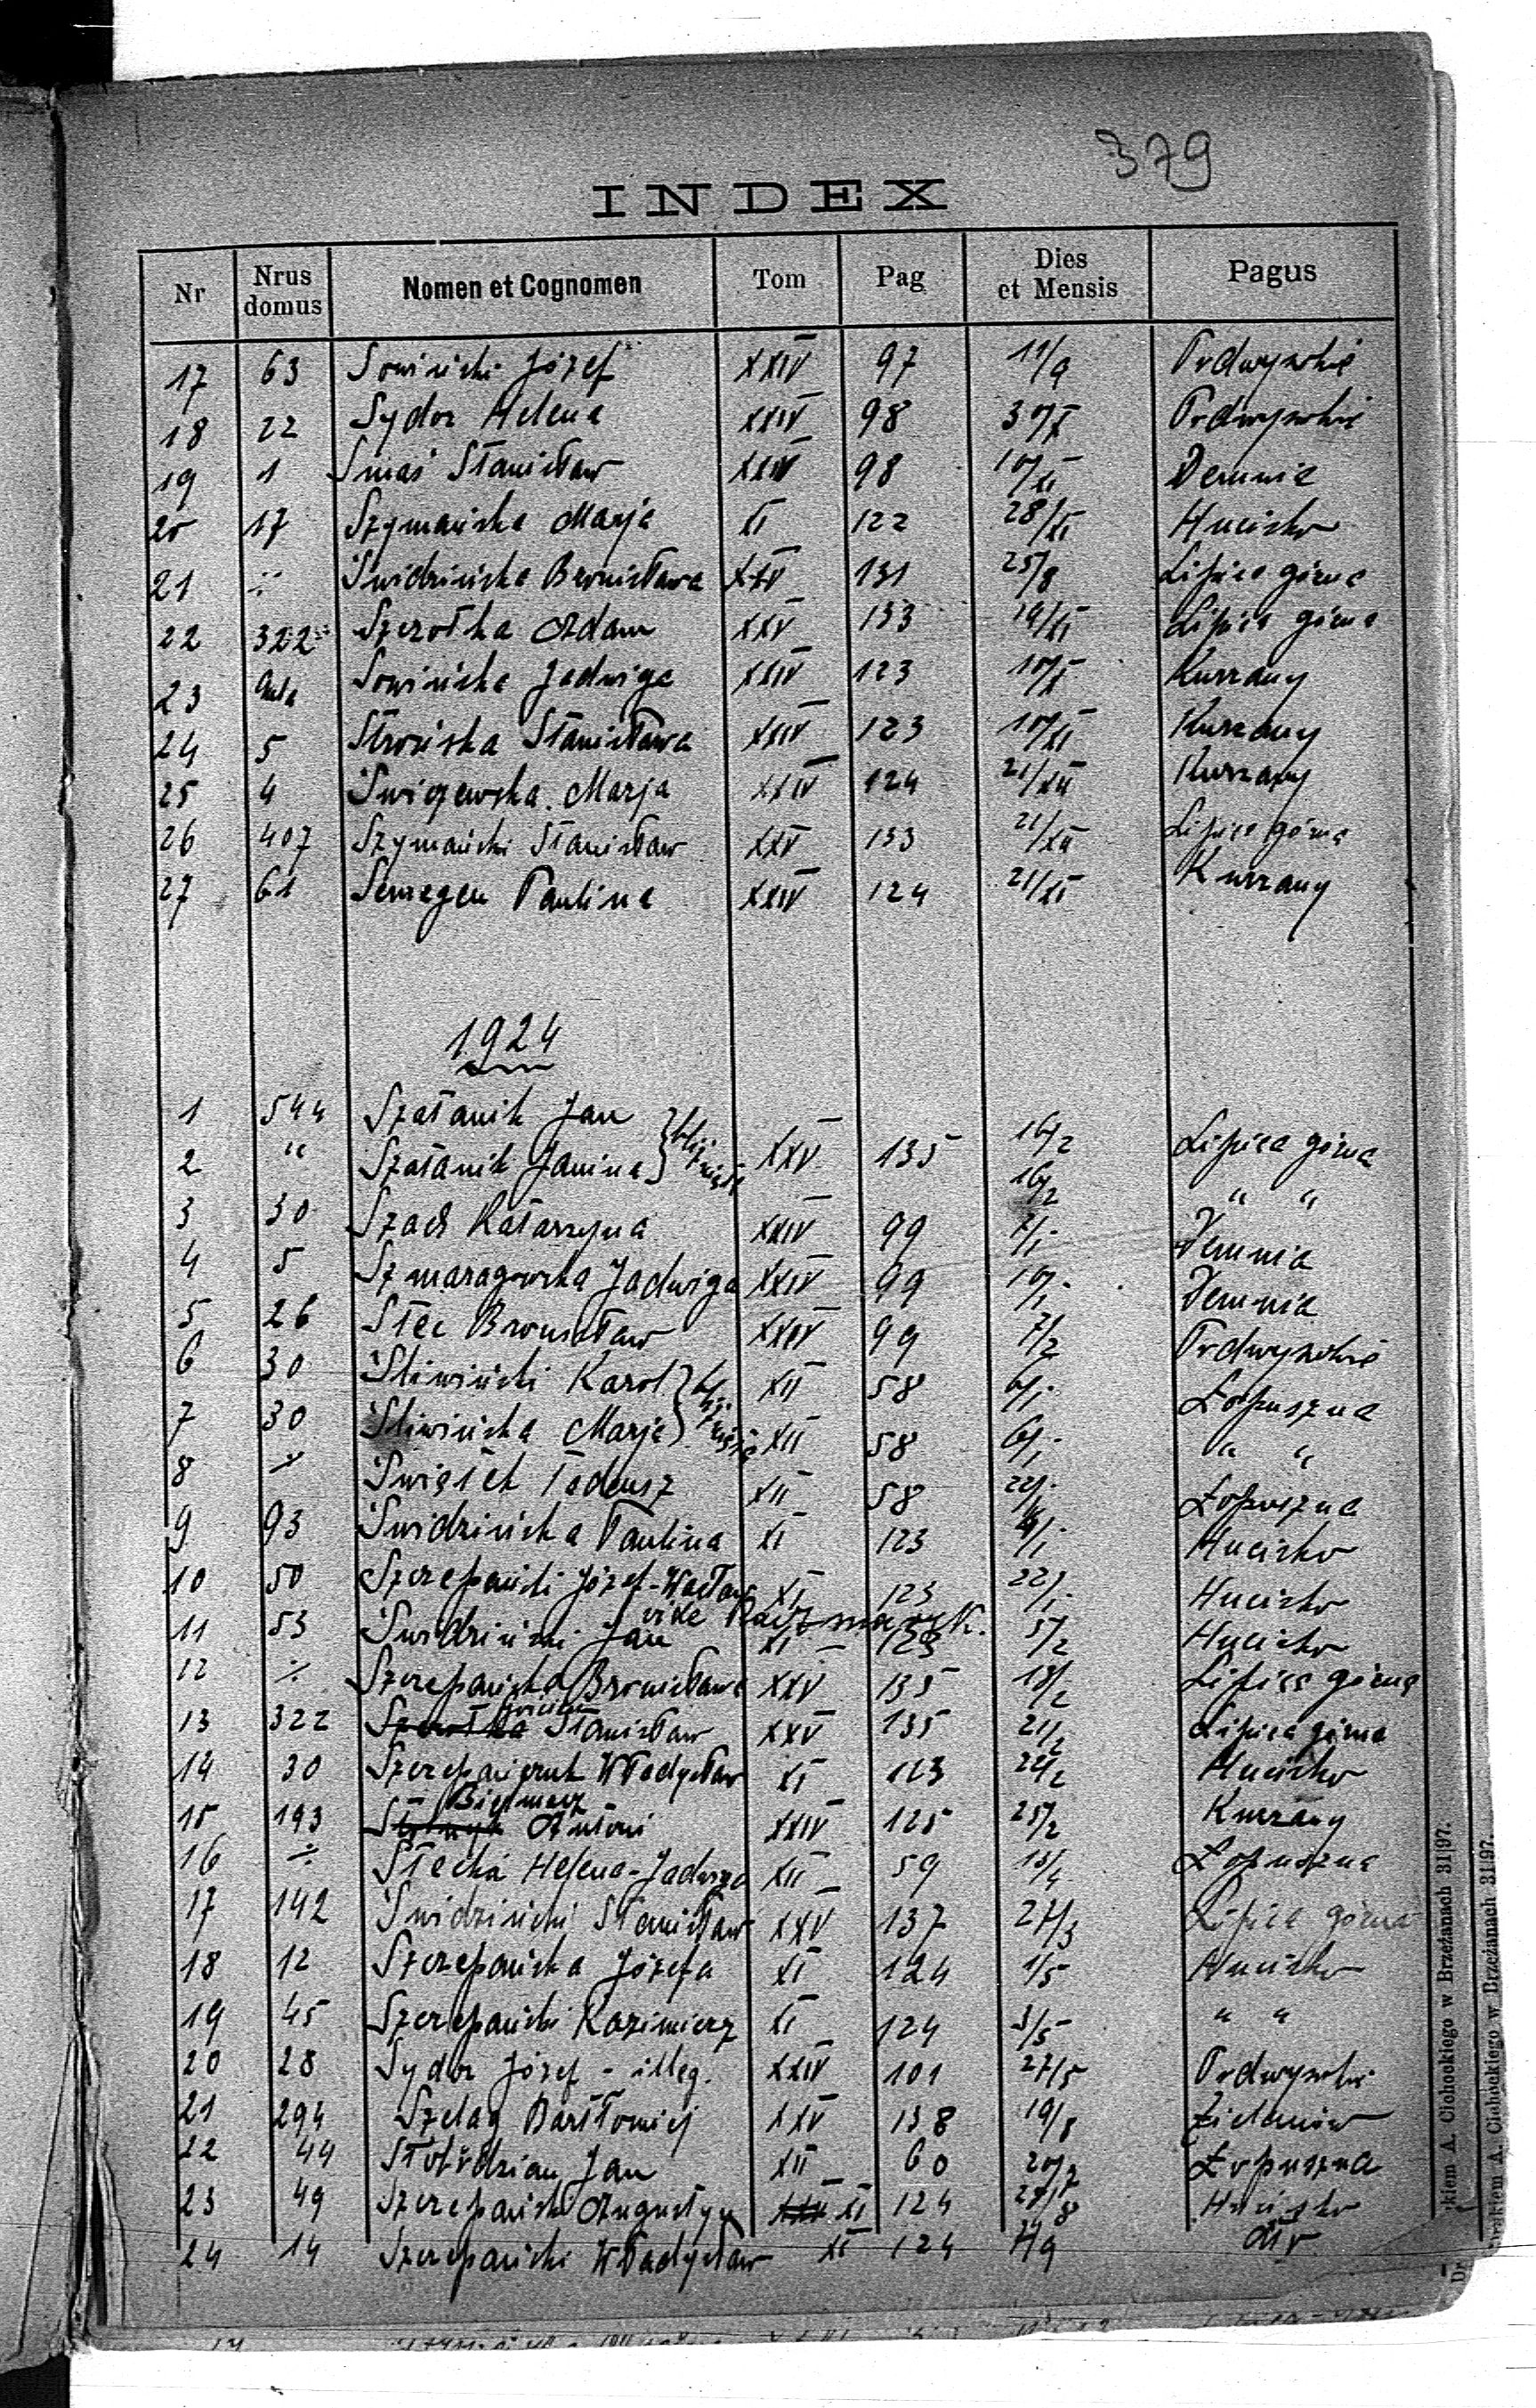 379
INDEX
Nr Nrus domus Nomen et Cognomen Tom Pag Dies et Mensis Pagus
17 63 Sowiński Józef XXIV 97 11/9 Podwysokie
18 22 Sydor Helena XXIV 98 30/X Podwysokie
19 1 Smaś Stanisław XXIV 98 10/XI Demnia
20 17 Szymańska Marja XI 122 28/XI Hucisko
21 ·/· Świdzińska Bronisława XXV 131 25/8 Lipica górna
22 322 Szerotka Adam XXV 133 19/XI Lipica górna
23 Sowińska Jadwiga XXIV 123 10/X Kurzany
24 5 Strońska Stanisława XXIV 123 10/XI Kurzany
25 4 Marja XXIV 124 21/XII Kurzany
26 407 Szymański Stanisław XXV 133 21/XII Lipica górna
27 61 Semegen Paulina XXIV 124 21/XI Kurzany
1924
1 544 Szatanik Jan
2 " Szatanik Janina } bliźnięta XXV 135 16/2 Lipica górna
16/2 " "
3 30 Szach Katarzyna XXIV 99 7/1 Demnia
4 5 Szmaragowska Jadwiga XXIV 99 10/1 Demnia
5 26 Stec Bronisław XXIV 99 7/2 Podwysokie
6 30 Śliwiński Karol } XII 58 6/1 Łopuszna
7 30 Śliwińska Marja } bliźnięta XII 58 6/1 " "
8 ·/· Świątek Tadeusz XII 58 22/1 Łopuszna
9 93 Świdzińska Paulina XI 123 Hucisko
10 50 Szczepański Józef-Wacław XI 123 22/1 Hucisko
vide Kaczmarczyk.
11 53 Świdziński Jan XI 123 5/2 Hucisko
12 ·/· Szczepańska Bronisława XXV 135 18/2 Lipica górna
13 322 Szerotka Stanisław XXV 135 21/2 Lipica górna
14 30 Szczepaniuk Władysław XI 123 24/2 Hucisko
15 193 Antoni XXIV 125 25/2 Kurzany
16 ·/· Stecka Helena-Jadwiga XII 59 13/4 Łopuszna
17 142 Świdziński Stanisław XXV 137 27/3 Lipica górna
18 12 Szczepańska Józefa XI 124 1/5 Hucisko
19 45 Szczepański Kazimierz XI 124 3/5 " "
20 28 Sydor Józef - illeg. XXIV 101 27/5 Podwysokie
21 294 Szeląg Bartłomiej XXV 138 19/8 Zielanów
22 44 Jan XII 60 20/7 Łopuszna
23 49 Szczepański Augustyn XXV XI 124 28/8 Hucisko
24 14 Szczepański Władysław XI 124 7/9 dto